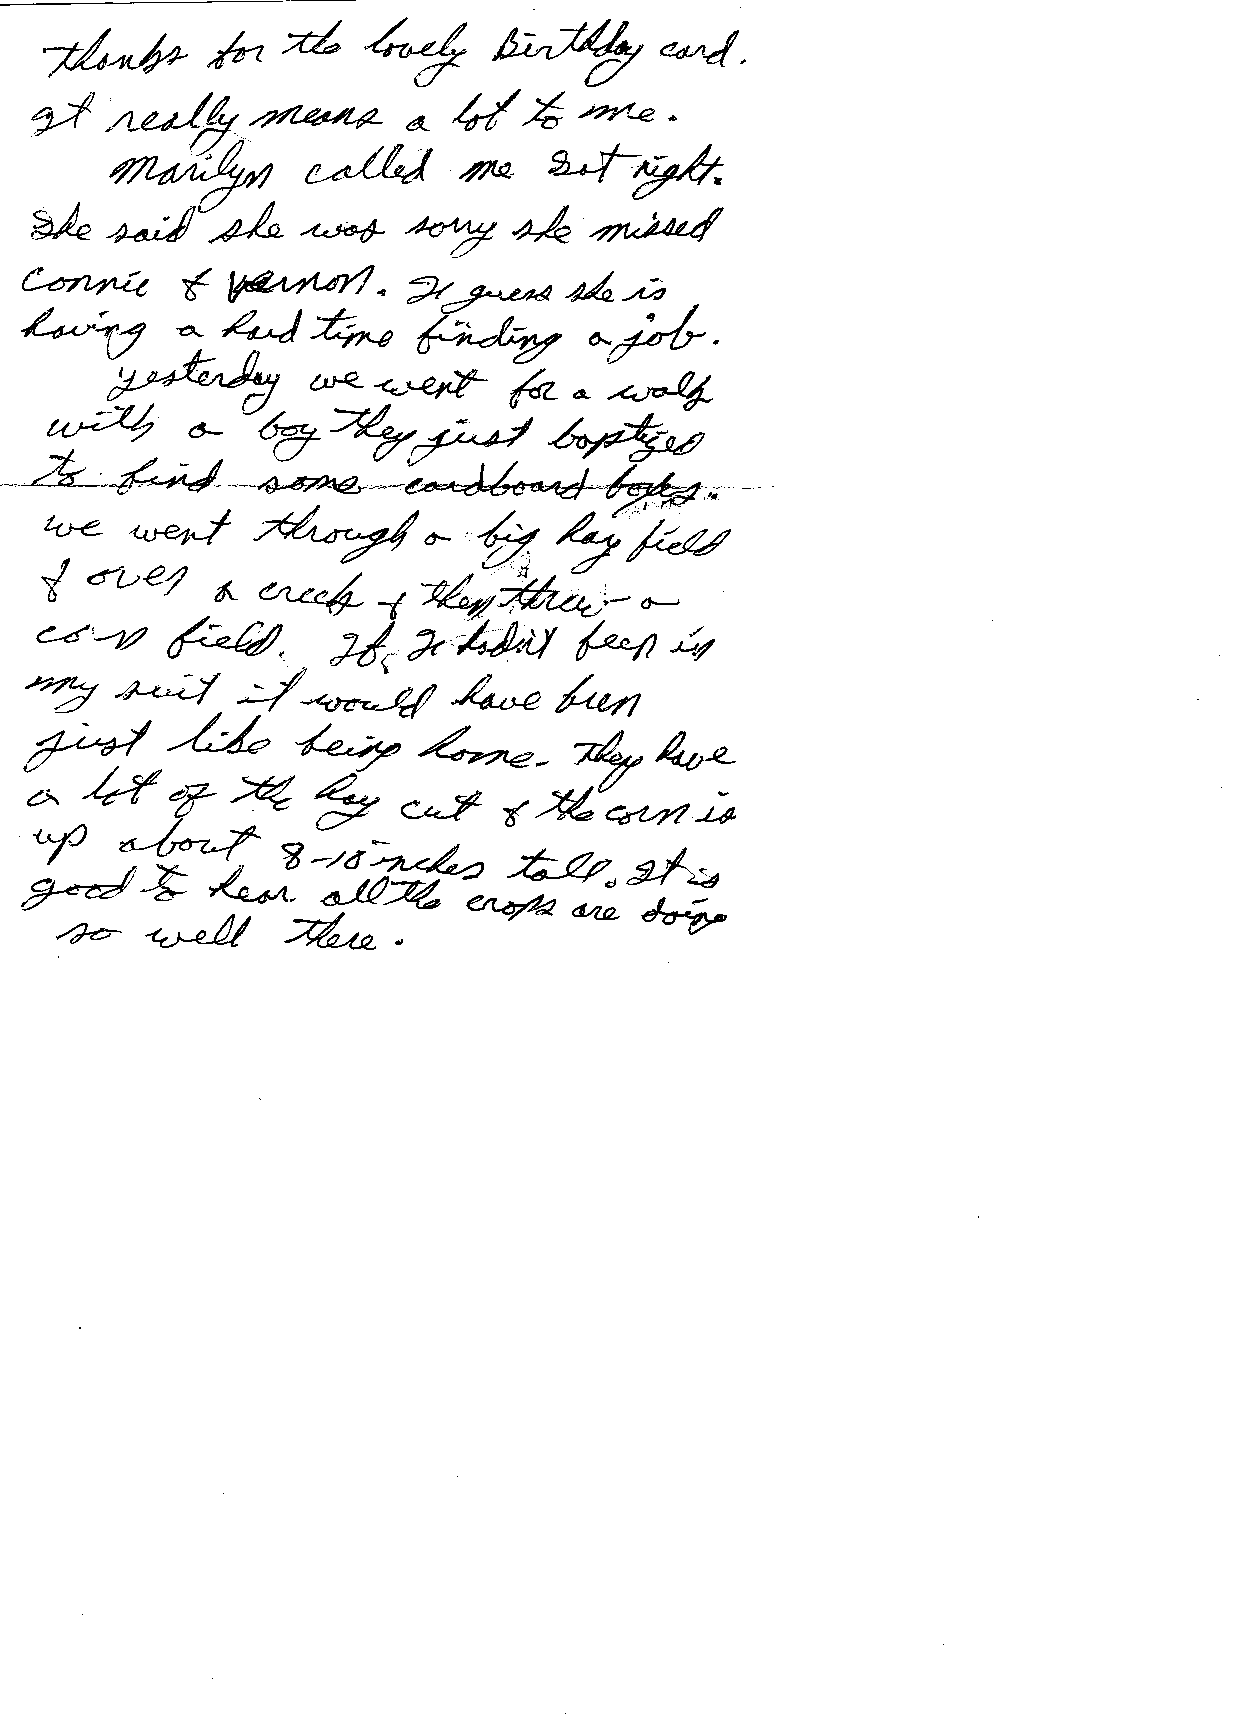 Thanks for the lovely Birthday card.
It really means a lot to me.
Marilyn called me Sat night.
She said she was sorry she missed
Connie & Vernon. I guess she is
having a hard time finding a job.
Yesterday we went for a walk
with a boy they just baptized
to find some cardboard boxes.
we went through a big hay field
& over a creek & then threw a
corn field. If I hadn't been in
my suit it would have been
just like being home. They have
a lot of the hay cut & the corn is
up about 8-10 inches tall. It is
good to hear all the crops are doing
so well there.